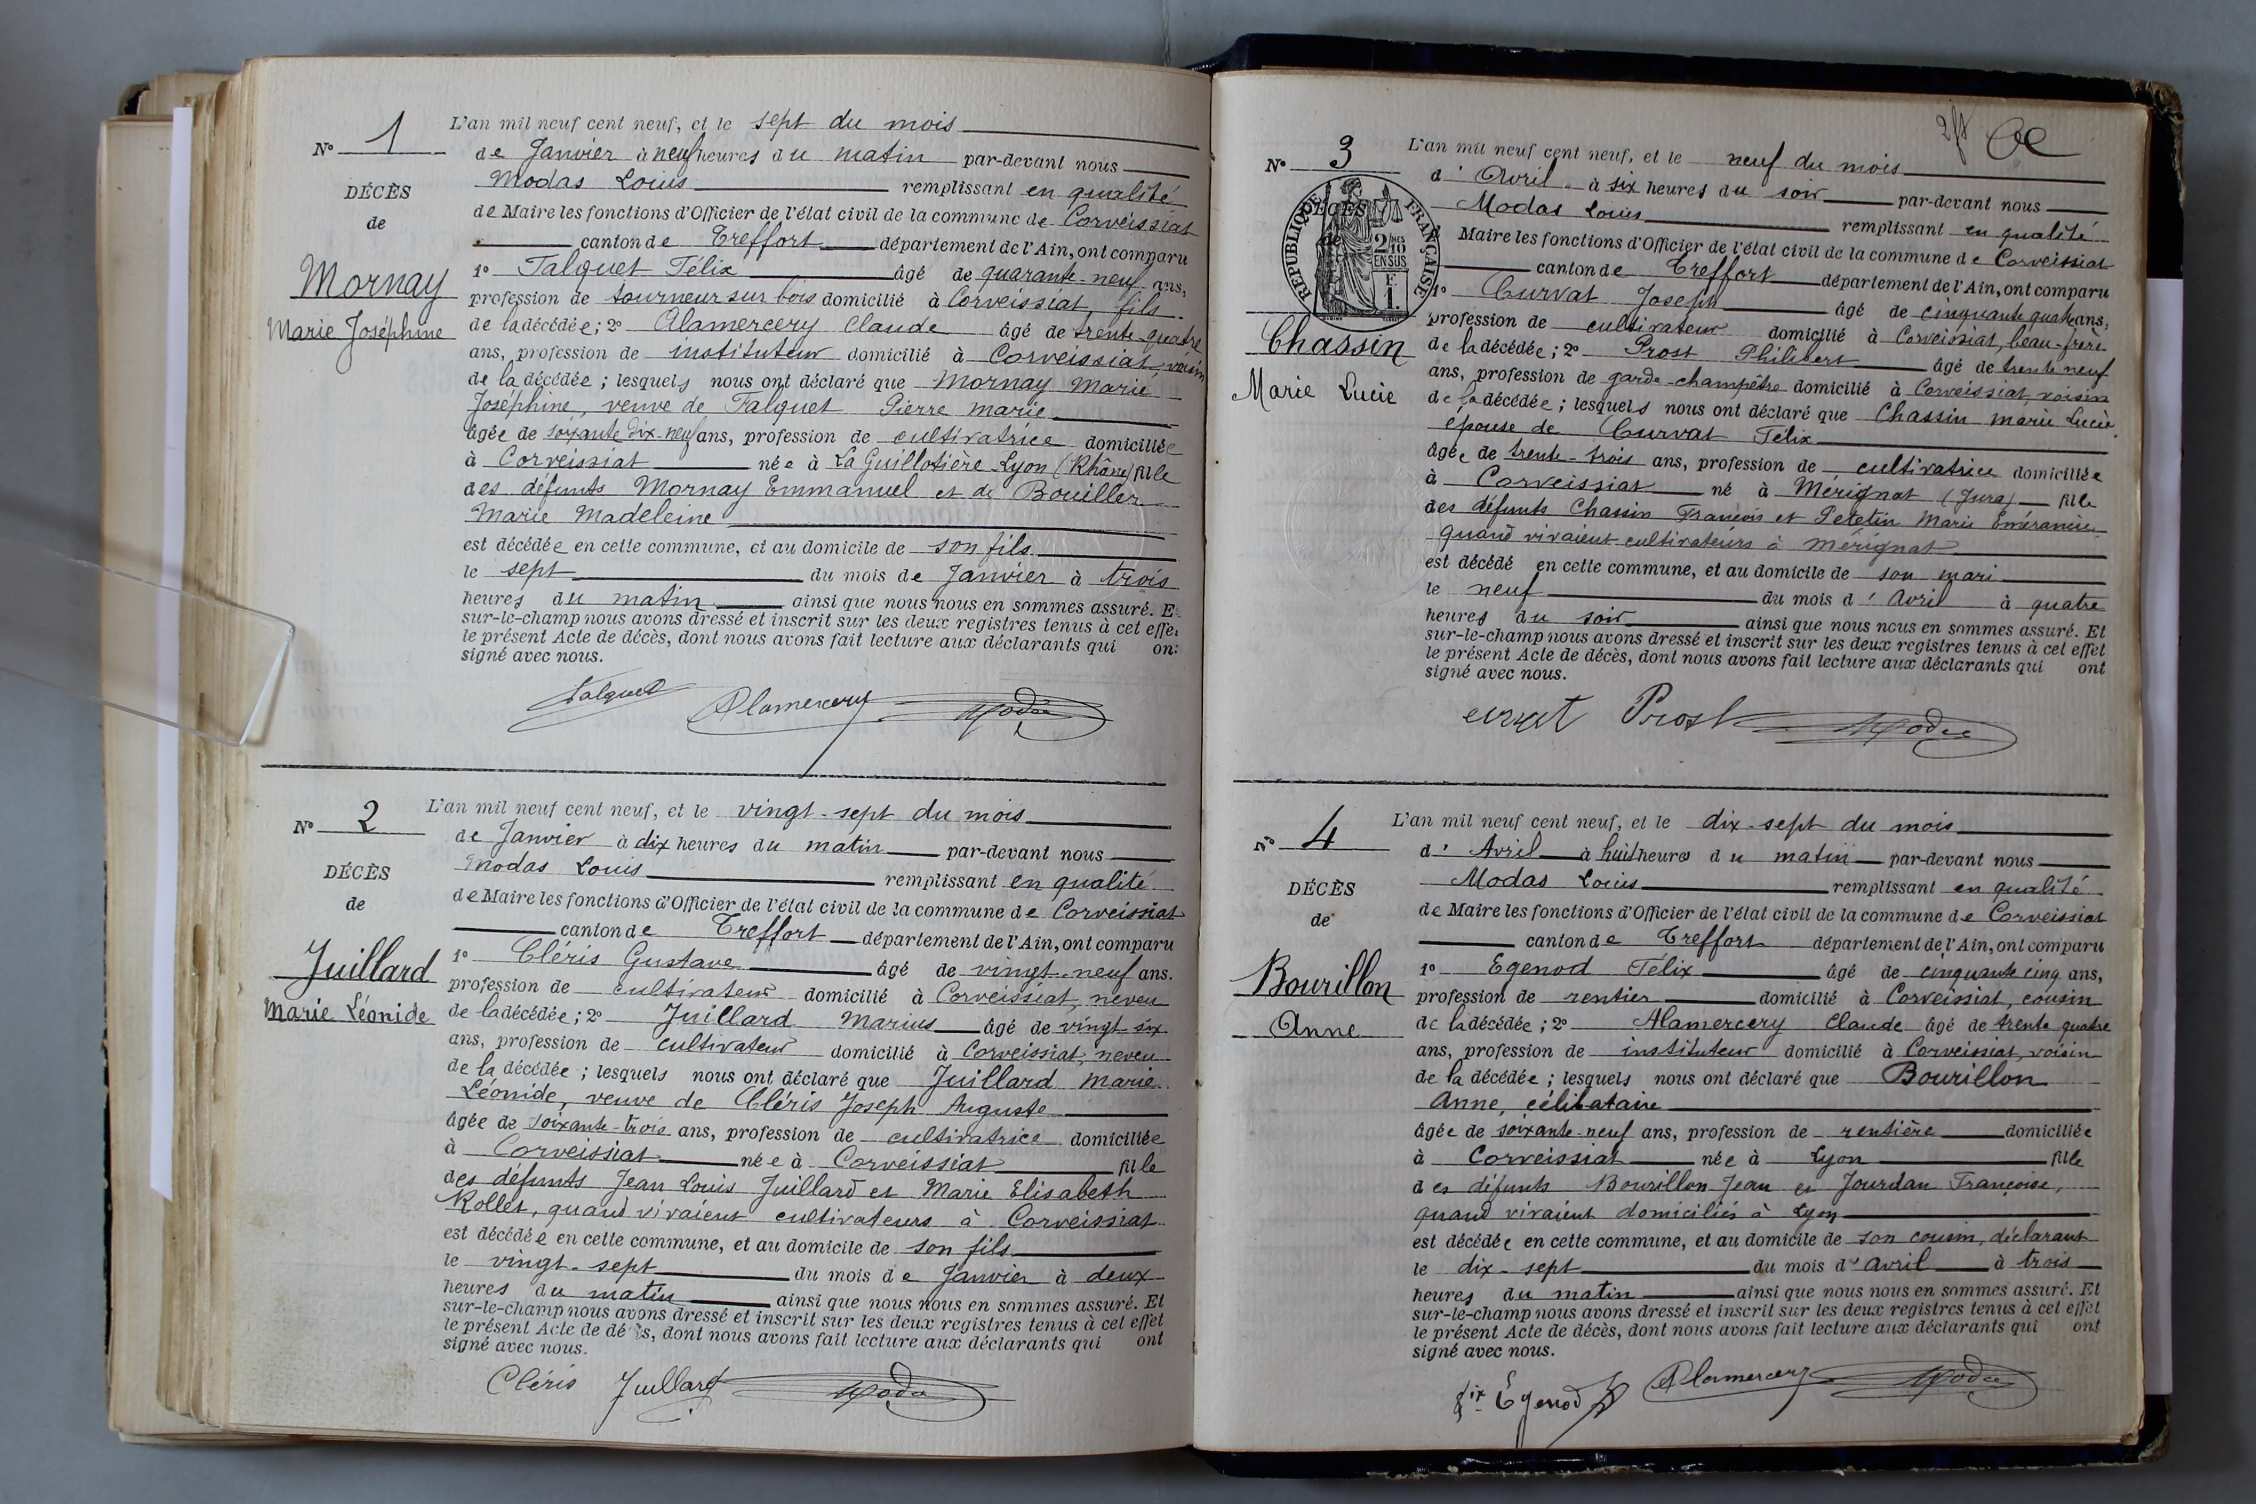 N° 1
DÉCÈS
de
Mornay
Marie Joséphine
L'an mil neuf cent neuf, et le sept du mois
de Janvier à neuf heures du matin par-devant nous
Modas Louis remplissant en qualité
de Maire les fonctions d'Officier de l'état civil de la commune de Corveissiat
canton de Treffort département de l'Ain, ont comparu
1° Falquet Félix âgé de quarante-neuf ans,
profession de tourneur sur bois domicilié à Corveissiat, fils
de la décédée; 2° Alamercery Claude âgé de trente-quatre
ans, profession de instituteur domicilié à Corveissiat, voisin
de la décédée; lesquels nous ont déclaré que Mornay Marie
Joséphine, veuve de Falquet Pierre Marie
âgée de soixante dix-neuf ans, profession de cultivatrice domiciliée
à Corveissiat née à La Guillotière Lyon (Rhône) fille
des défunts Mornay Emmanuel et de Bouiller
Marie Madeleine
est décédée en cette commune, et au domicile de son fils
le sept du mois de Janvier à trois
heures du matin ainsi que nous nous en sommes assuré. E
sur-le-champ nous avons dressé et inscrit sur les deux registres tenus à cet effe
le présent Acte de décès, dont nous avons fait lecture aux déclarants qui on
signé avec nous.
Falquet Alamercery Modas
N° 2
DÉCÈS
de
Juillard
Marie Léonide
L'an mil neuf cent neuf, et le vingt-sept du mois
de Janvier à dix heures du matin par-devant nous
Modas Louis remplissant en qualité
de Maire les fonctions d'Officier de l'état civil de la commune de Corveissiat
canton de Treffort département de l'Ain, ont comparu
1° Cléris Gustave âgé de vingt-neuf ans.
profession de cultivateur domicilié à Corveissiat, neveu
de la décédée; 2° Juillard Marius âgé de vingt six
ans, profession de cultivateur domicilié à Corveissiat, neveu
de la décédée; lesquels nous ont déclaré que Juillard Marie
Léonide, veuve de Cléris Joseph Auguste
âgée de soixante-trois ans, profession de cultivatrice domiciliée
à Corveissiat née à Corveissiat fille
des défunts Jean Louis Juillard et Marie Elisabeth
Rollet, quand vivaient cultivateurs à Corveissiat
est décédée en cette commune, et au domicile de son fils
le vingt-sept du mois de Janvier à deux
heures du matin ainsi que nous nous en sommes assuré. Et
sur-le-champ nous avons dressé et inscrit sur les deux registres tenus à cet effet
le présent Acte de dé s, dont nous avons fait lecture aux déclarants qui ont
signé avec nous.
Cléris Juillard Modas
N° 3
DÉCÈS
de
RÉPUBLIQUE FRANÇAISE
2/10 EN SUS
F. 1.
Chassin
Marie Lucie
L'an mil neuf cent neuf, et le neuf du mois
d'Avril à six heures du soir par-devant nous
Modas Louis remplissant en qualité
Maire les fonctions d'Officier de l'état civil de la commune de Corveissiat
canton de Treffort département de l'Ain, ont comparu
1° Curvat Joseph âgé de cinquante quatre ans,
profession de cultivateur domicilié à Corveissiat, beau-frère
de la décédée; 2° Prost Philibert âgé de trente neuf
ans, profession de garde-champêtre domicilié à Corveissiat, voisin
de la décédée; lesquels nous ont déclaré que Chassin Marie Lucie
épouse de Curvat Félix
âgée de trente-trois ans, profession de cultivatrice domiciliée
à Corveissiat né à Mérignat (Jura) fille
des défunts Chassin François et Petetin Marie
quand vivaient cultivateurs à Mérignat
est décédé en cette commune, et au domicile de son mari
le neuf du mois d'Avril à quatre
heures du soir ainsi que nous nous en sommes assuré. Et
sur-le-champ nous avons dressé et inscrit sur les deux registres tenus à cet effet
le présent Acte de décès, dont nous avons fait lecture aux déclarants qui ont
signé avec nous.
curvat Prost Modas
N° 4
DÉCÈS
de
Bourillon
Anne
L'an mil neuf cent neuf, et le dix-sept du mois
d'Avril à huit heures du matin par-devant nous
Modas Louis remplissant en qualité
de Maire les fonctions d'Officier de l'état civil de la commune de Corveissiat
canton de Treffort département de l'Ain, ont comparu
1° Egenod Félix âgé de cinquante cinq ans,
profession de rentier domicilié à Corveissiat, cousin
de la décédée; 2° Alamercery Claude âgé de trente quatre
ans, profession de instituteur domicilié à Corveissiat, voisin
de la décédée; lesquels nous ont déclaré que Bourillon
Anne, célibataire
âgée de soixante-neuf ans, profession de rentière domiciliée
à Corveissiat née à Lyon fille
des défunts Bourillon Jean et Jourdan Françoise,
quand vivaient domiciliés à Lyon
est décédée en cette commune, et au domicile de son cousin, déclarant
le dix-sept du mois d'Avril à trois
heures du matin ainsi que nous nous en sommes assuré. Et
sur-le-champ nous avons dressé et inscrit sur les deux registres tenus à cet effet
le présent Acte de décès, dont nous avons fait lecture aux déclarants qui ont
signé avec nous.
Egenod Alamercery Modas